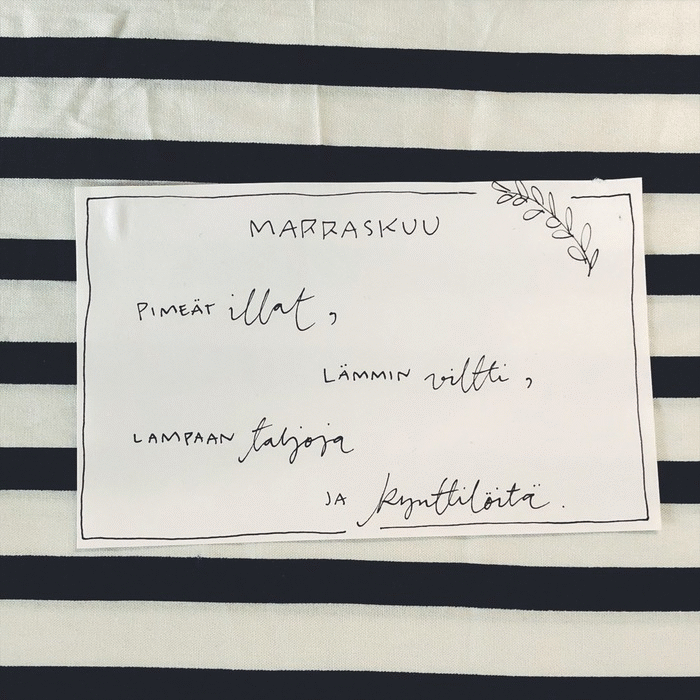 MARRASKUU
PIMEÄT illat,
LÄMMIN viltti,
LAMPAAN taljoja
JA kynttilöitä.